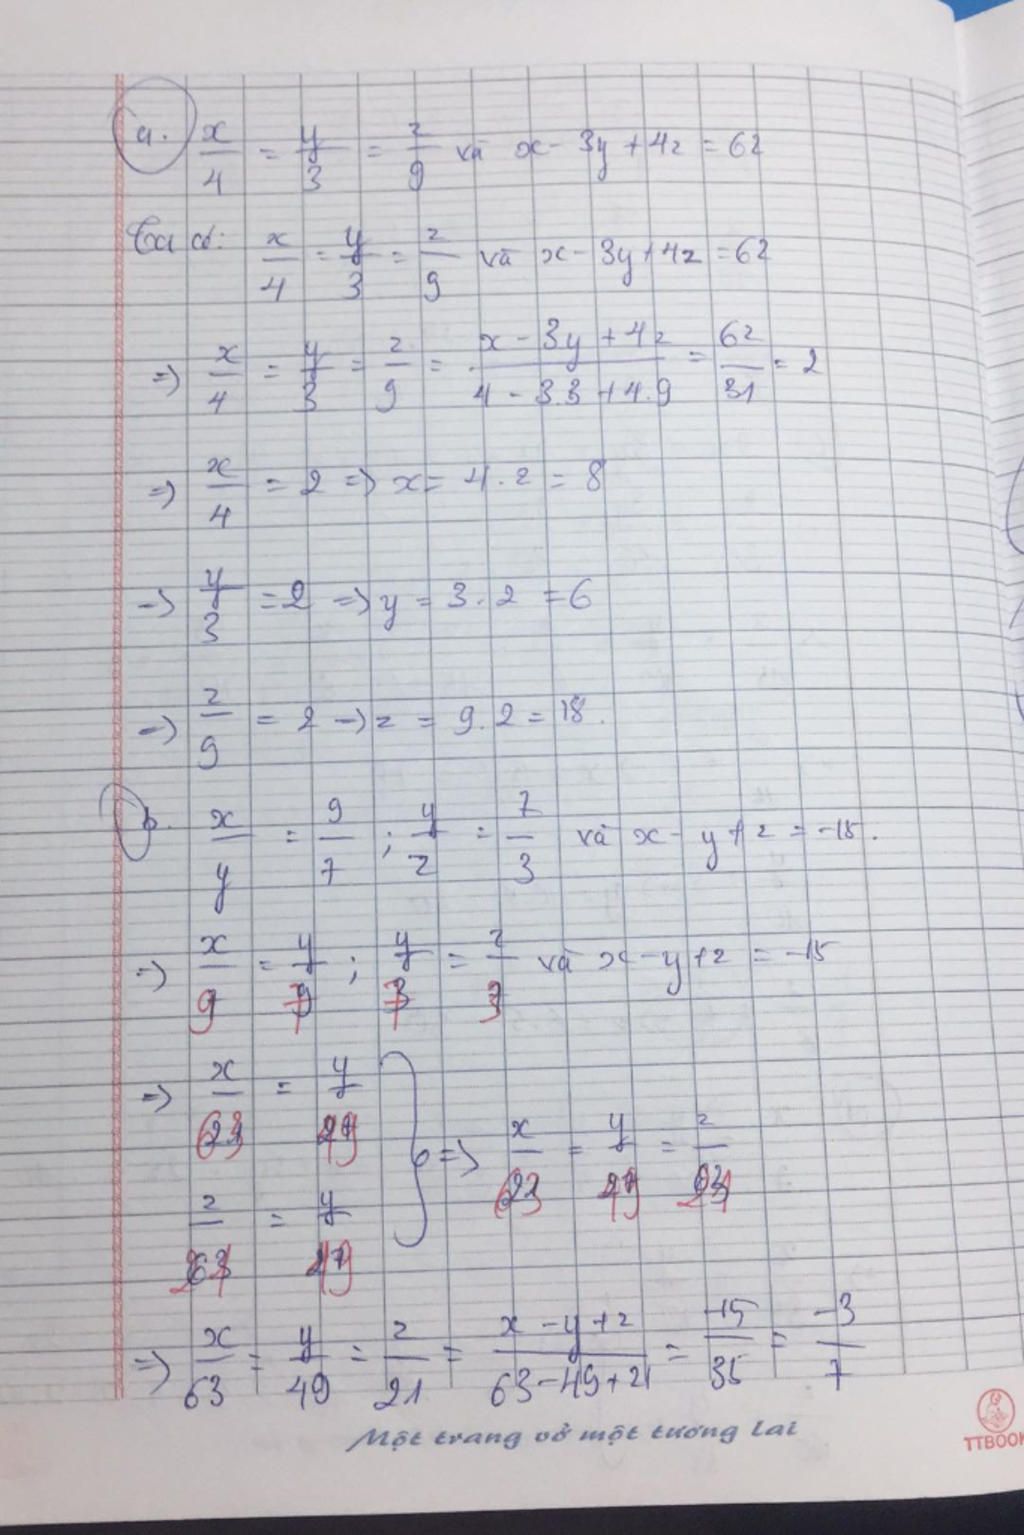 a. x/4 = y/3 = z/9 và x - 3y + 4z = 62
Ta có: x/4 = y/3 = z/9 và x - 3y + 4z = 62
=> x/4 = y/3 = z/9 = x - 3y + 4z / 4 - 3.3 + 4.9 = 62/31 = 2
=> x/4 = 2 => x = 4.2 = 8
=> y/3 = 2 => y = 3.2 = 6
=> z/9 = 2 => z = 9.2 = 18.
b. x/y = 9/7 ; y/z = 7/3 và x - y + z = -15.
=> x/9 = y/7 ; y/7 = z/3 và x - y + z = -15
=> x/63 = y/49
z/21 = y/49
=> x/63 = y/49 = z/21
=> x/63 = y/49 = z/21 = x - y + z / 63 - 49 + 21 = -15/35 = -3/7
Một trang vở một tương lai
TTBOOK